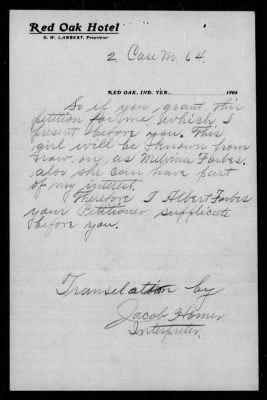 Red Oak Hotel
G. W. LAMBERT, Proprietor
2 Case M. 64.
RED OAK, IND. TER., 1906
So if you, grant this
petition for me, which I
present before you. This
girl will be Known from
now on, as Melvina Forbes.
also she can have part
of my interest.
Therefore I Albert Forbes
your Petitioner supplicate
before you.
Translation by
Jacob Homer
Interpreter.